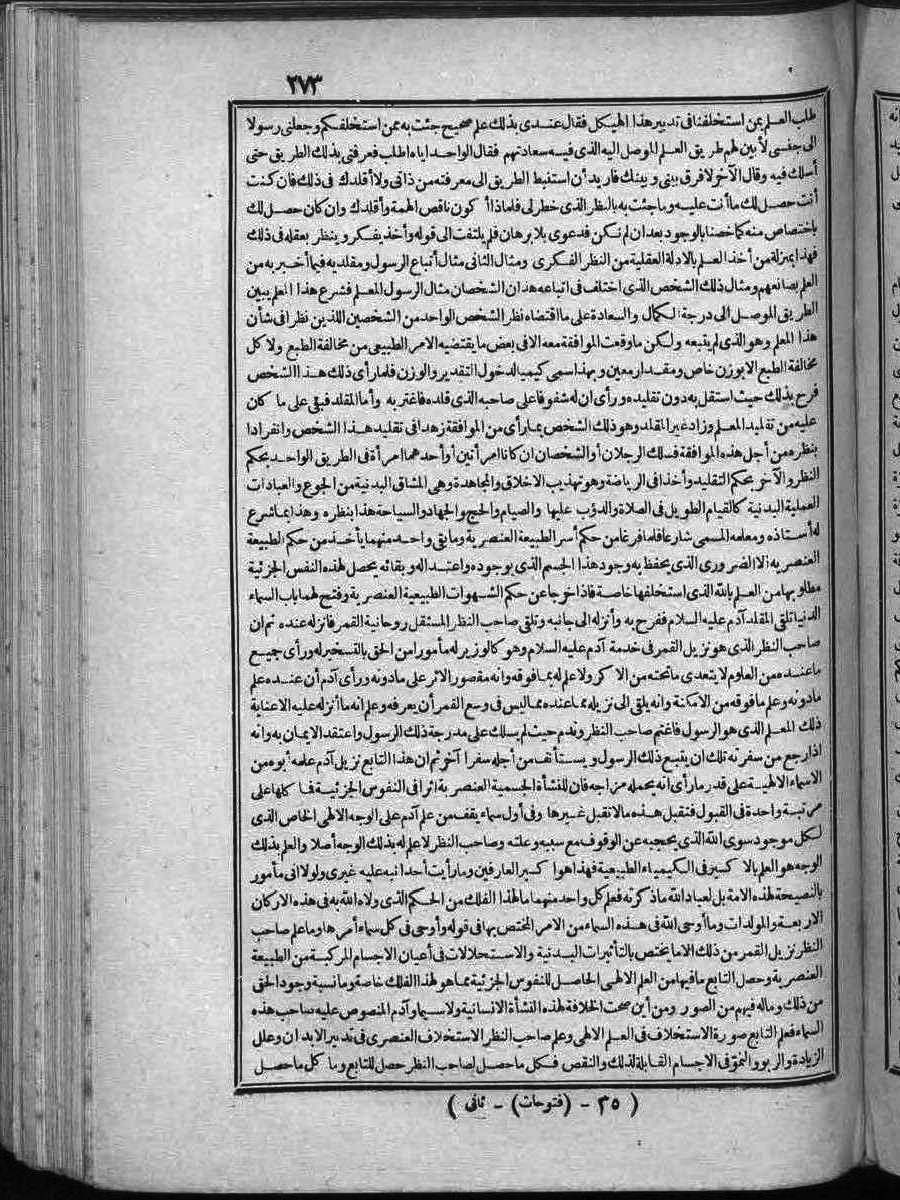 ٢٧٣
طلب العلم بمن استخلفنا فى تدبير هذا الهيكل فقال عندى بذلك علم صحيح جئت به ممن استخلفكم وجعلنى رسولا
الى جنسى لأبين لهم طريق العلم الموصل اليه الذى فيه سعادتهم فقال الواحد اياه اطلب فعرفنى بذلك الطريق حتى
أسلك فيه وقال الآخر لا فرق بينى وبينك فاريد أن استنبط الطريق الى معرفته من ذاتى ولا أقلدك فى ذلك فان كنت
أنت حصل لك ما أنت عليه وما جئت به بالنظر الذى خطر لى فلماذا أكون ناقص الهمة وأقلدك وان كان حصل لك
باختصاص منه كما خصنا بالوجود بعد ان لم نكن فدعوى بلا برهان فلم يلتفت الى قوله وأخذ يفكر وينظر بعقله فى ذلك
فهذا بمنزلة من أخذ العلم بالادلة العقلية من النظر الفكرى ومثال الثانى مثال أتباع الرسول ومقلديه فيما أخبر به من
العلم بصانعهم ومثال ذلك الشخص الذى اختلف فى اتباعه هذان الشخصان مثال الرسول المعلم فشرع هذا المعلم يبين
الطريق الموصل الى درجة الكمال والسعادة على ما اقتضاه نظر الشخص الواحد من الشخصين اللذين نظرا فى شأن
هذا المعلم وهو الذى لم يتبعه ولكن ما وقعت الموافقة معه الا فى بعض ما يقتضيه الامر الطبيعى من مخالفة الطبع ولا كل
مخالفة الطبع الا بوزن خاص ومقدار معين وبهذا سمى كيمياء لدخول التقدير والوزن فلما رأى ذلك هذا الشخص
فرح بذلك حيث استقل به دون تقليده ورأى ان له شفوفا على صاحبه الذى قلده فاغتر به وأما المقلد فبقى على ما كان
عليه من تقليد المعلم وزاد غير المقلد وهو ذلك الشخص بما رأى من الموافقة زهدا فى تقليد هذا الشخص وانفرادا
بنظره من أجل هذه الموافقة فسلك الرجلان أو الشخصان ان كانا امرأتين أو أحدهما امرأة فى الطريق الواحد بحكم
النظر والآخر بحكم التقليد وأخذا فى الرياضة وهو تهذيب الاخلاق والمجاهدة وهى المشاق البدنية من الجوع والعبادات
العملية البدنية كالقيام الطويل فى الصلاة والدؤب عليها والصيام والحج والجهاد والسياحة هذا بنظره وهذا بما شرع
له أستاذه ومعلمه المسمى شارعا فلما فرغا من حكم أسر الطبيعة العنصرية وما بقى واحد منهما يأخذ من حكم الطبيعة
العنصرية الا الضرورى الذى يحفظ به وجود هذا الجسم الذى بوجوده واعتداله وبقائه يحصل لهذه النفس الجزئية
مطلوبها من العلم بالله الذى استخلفها خاصة فاذا خرجا عن حكم الشهوات الطبيعية العنصرية وفتح لهما باب السماء
الدنيا تلقى المقلد آدم عليه السلام ففرح به وأنزله الى جانبه وتلقى صاحب النظر المستقل روحانية القمر فانزله عنده ثم ان
صاحب النظر الذى هو نزيل القمر فى خدمة آدم عليه السلام وهو كالوزير له مأمورا من الحق بالتسخير له ورأى جميع
ما عنده من العلوم لا يتعدى ما تحته من الاكر ولا علم له بما فوقه وانه مقصور الاثر على ما دونه ورأى آدم أن عنده علم
ما دونه وعلم ما فوقه من الامكنة وانه يلقى الى نزيله مما عنده مما ليس فى وسع القمر أن يعرفه وعلم انه ما أنزله عليه الا عناية
ذلك المعلم الذى هو الرسول فاغتم صاحب النظر وندم حيث لم يسلك على مدرجة ذلك الرسول واعتقد الايمان به وانه
اذا رجع من سفرته تلك ان يتبع ذلك الرسول ويستأنف من أجله سفرا آخر ثم ان هذا التابع نزيل آدم علمه أبوه من
الاسماء الالهية على قدر ما رأى انه يحمله مزاجه فان للنشأة الجسمية العنصرية اثرا فى النفوس الجزئية فما كلها على
مرتبة واحدة فى القبول فتقبل هذه ما لا تقبل غيرها وفى أول سماء يقف من علم آدم على الوجه الالهى الخاص الذى
لكل موجود سوى الله الذى يحجبه عن الوقوف مع سببه وعلته وصاحب النظر لا علم له بذلك الوجه أصلا والعلم بذلك
الوجه هو العلم بالاكسير فى الكيمياء الطبيعية فهذا هو اكسير العارفين وما رأيت أحدا نبه عليه غيرى ولولا انى مأمور
بالنصيحة لهذه الامة بل لعباد الله ما ذكرته فعلم كل واحد منهما ما لهذا الفلك من الحكم الذى ولاه الله به فى هذه الاركان
الاربعة والمولدات وما أوحى الله فى هذه السماء من الامر المختص بها فى قوله وأوحى فى كل سماء أمرها وما علم صاحب
النظر نزيل القمر من ذلك الا ما يختص بالتأثيرات البدنية والاستحالات فى أعيان الاجسام المركبة من الطبيعة
العنصرية وحصل التابع ما فيها من العلم الالهى الحاصل للنفوس الجزئية مما هو لهذا الفلك خاصة وما نسبة وجود الحق
من ذلك وماله فيهم من الصور ومن أين صحت الخلافة لهذه النشأة الانسانية ولا سيما وآدم المنصوص عليه صاحب هذه
السماء فعلم التابع صورة الاستخلاف فى العلم الالهى وعلم صاحب النظر الاستخلاف العنصرى فى تدبير الابدان وعلل
الزيادة والربو والنمو فى الاجسام القابلة لذلك والنقص فكل ما حصل لصاحب النظر حصل للتابع وما كل ما حصل
( ٣٥ - (فتوحات) - ثانى )